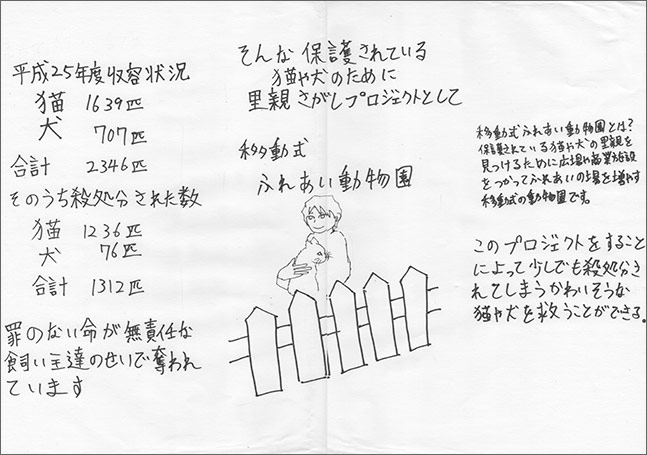 平成25年度収容状況
猫 1639匹
犬 707匹
合計 2346匹
そのうち殺処分された数
猫 1236匹
犬 76匹
合計 1312匹
罪のない命が無責任な
飼い主達のせいで奪われ
ています
そんな保護されている
猫や犬のために
里親さがしプロジェクトとして
移動式
ふれあい動物園
移動式ふれあい動物園とは?
保護されている猫や犬の里親を
見つけるために広場や商業施設
をつかってふれあいの場を増やす
移動式の動物園です。
このプロジェクトをすること
によって少しでも殺処分さ
れてしまうかわいそうな
猫や犬を救うことができる。